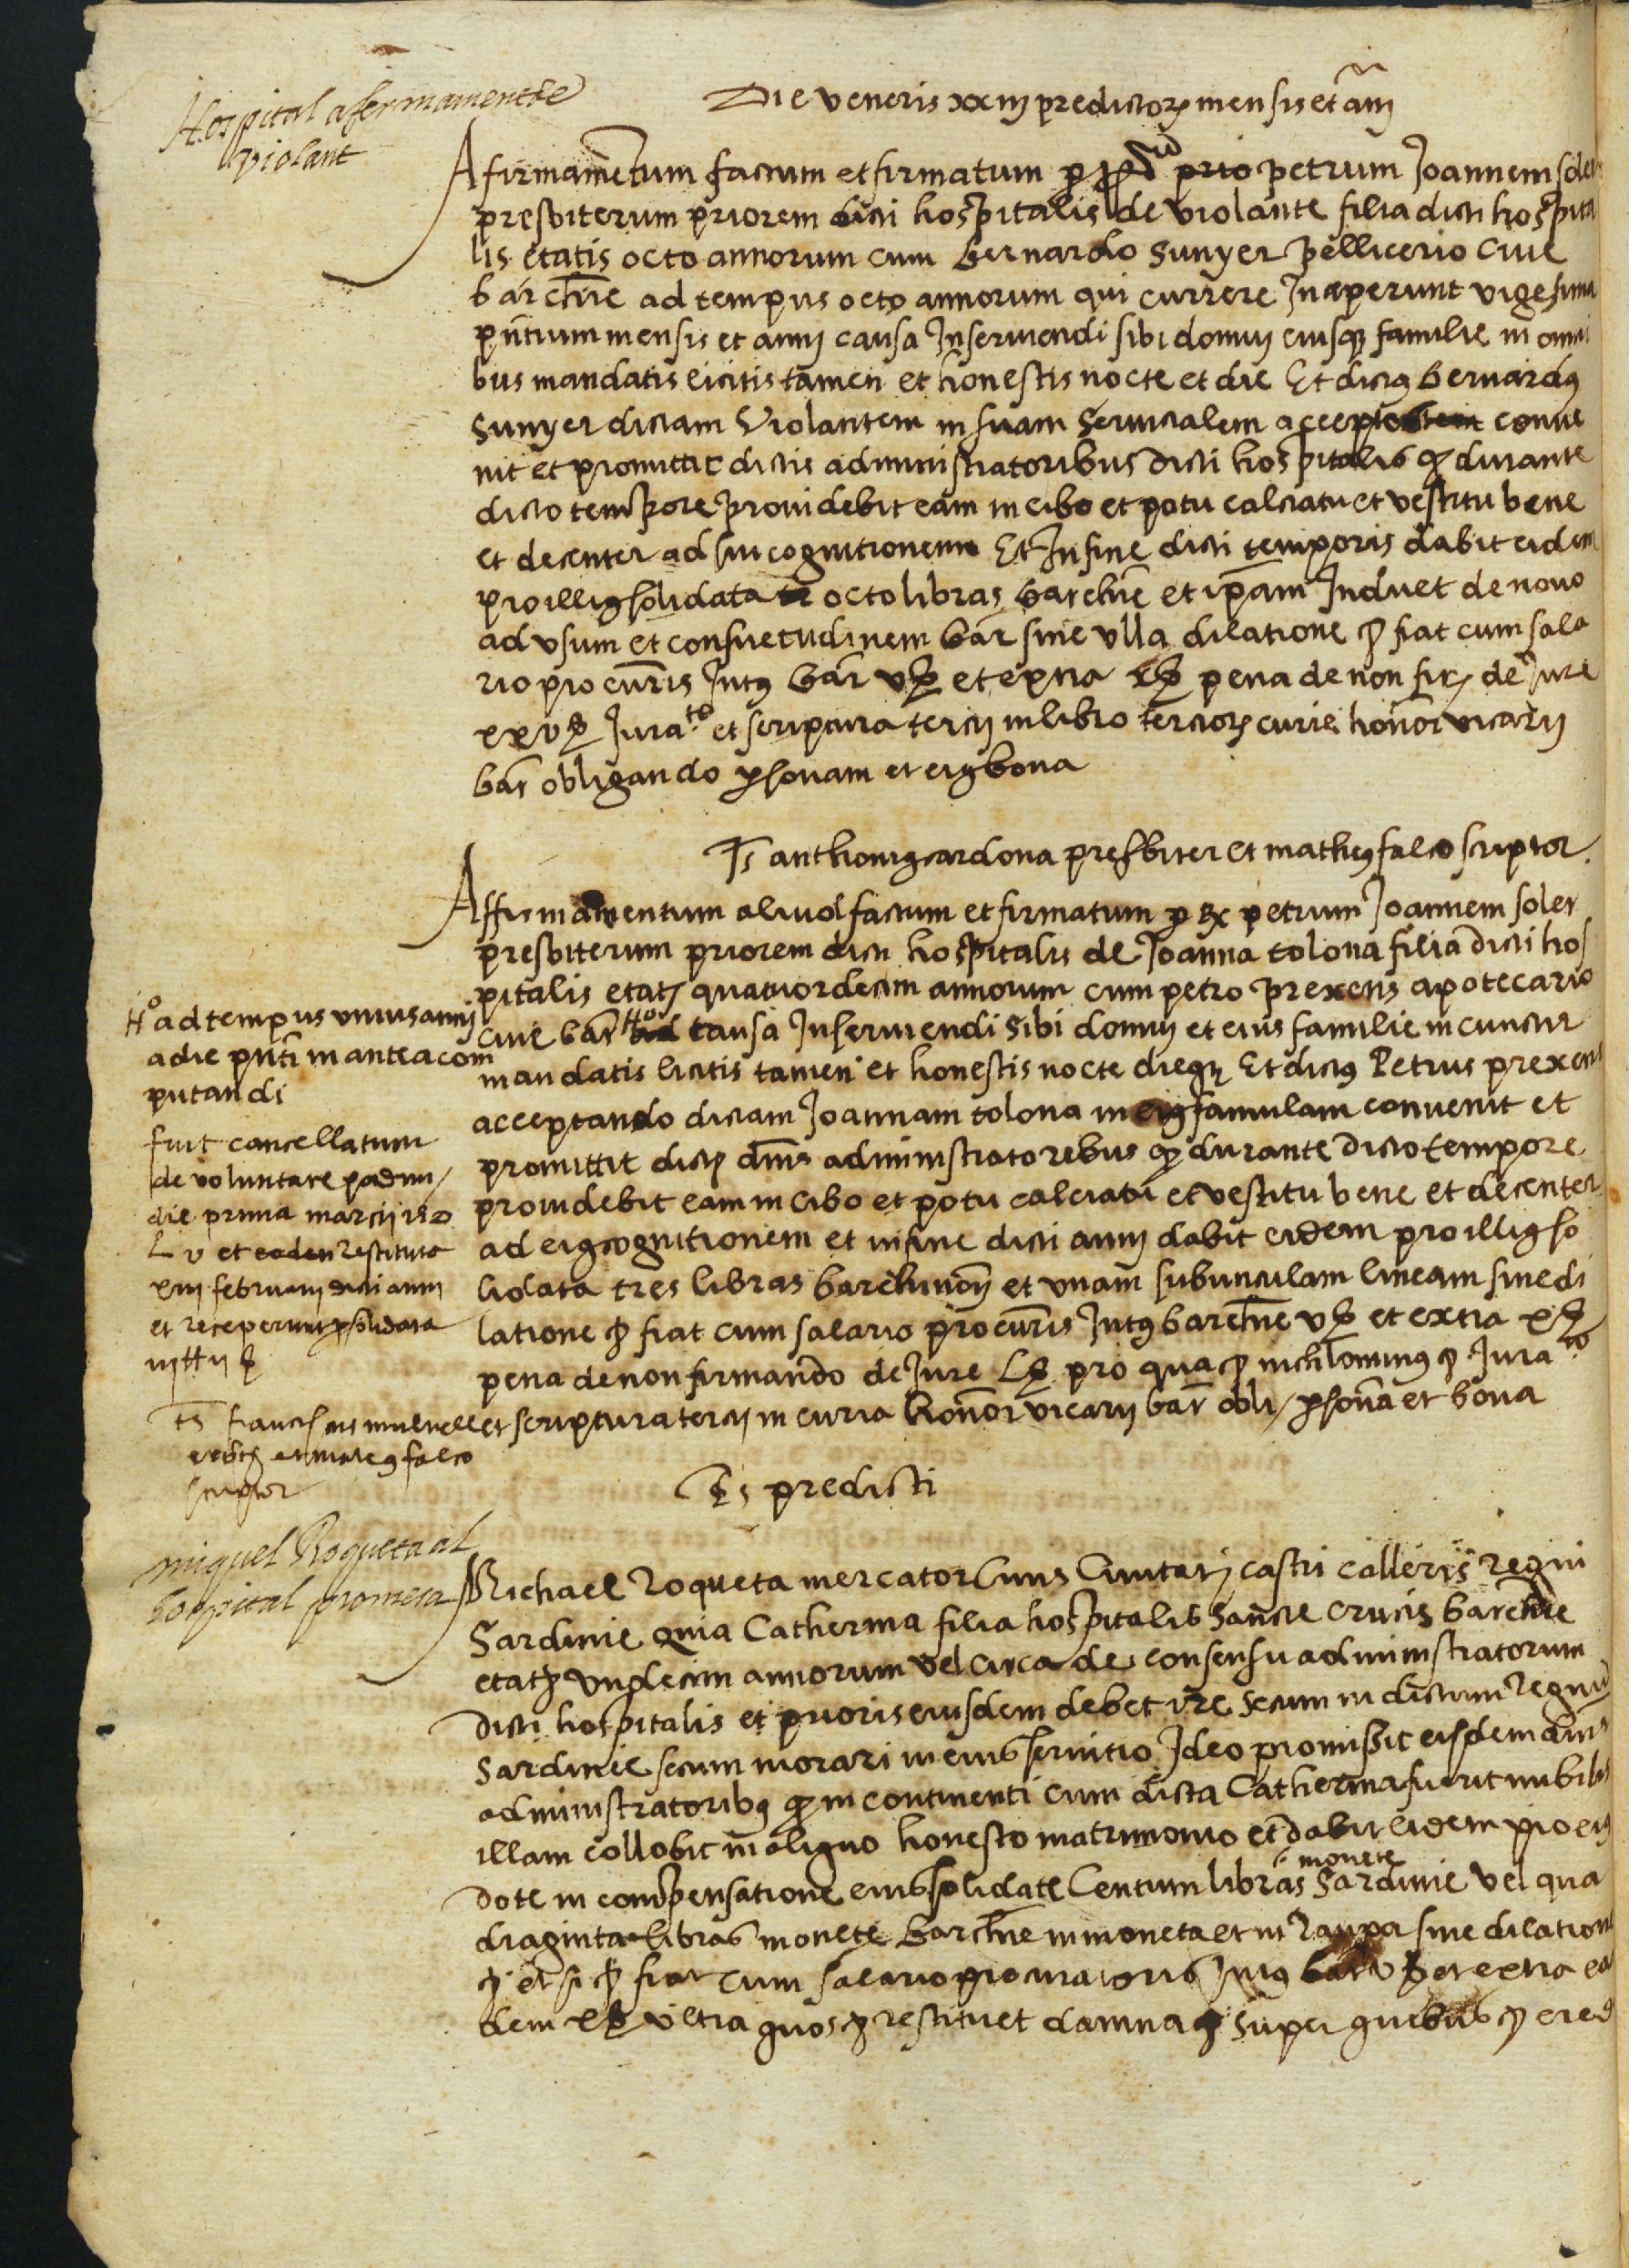 Hospital afermament de
violant
Die veneris xxiij predictorum mensis et anni
Afirmamentum factum et firmatum per prio petrum Joannem soler
presbiterum priorem dicti hospitalis de violante filia dicti hospita
lis etatis octo annorum cum bernardo sunyer pellicerio cive
barchne ad tempus octo annorum qui currere Inceperunt vigesima
pntium mensis et anni causa Inserviendi sibi domui eiusque familie in omni
bus mandatis licitis tamen et honestis nocte et die Et dictus bernardus
sunyer dictam violantem in suam servicialem conve
nit et promittit dictis administratoribus dicti hospitalis quod durante
dicto tempore providebit eam in cibo et potu calciatu et vestitu bene
et decenter ad sui cognitionem Et In fine dicti temporis dabit eidem
pro illius solidata octo libras barchne et ipam Induet de novo
ad usum et consuetudinem bar sine ulla dilatione et fiat cum sala
rio procuris Intus bar v s et extra x s pena de non fir de Jure
xxv s Jura to et scriptura tercii in libro terciorum curie honor vicarii
bar obligando personam et eius bona
Ts anthonius cardona presbiter et matheus falco scriptor
Affirmamentum aliud factum et firmatum per petrum Joannem soler
presbiterum priorem dicti hospitalis de Joanna tolona filia dicti hos
pitalis etatis quatuordecim annorum cum petro prexens apotecario
cive bar Ho causa Inserviendi sibi domui et eius familie in cunctis
mandatis licitis tamen et honestis nocte dieque Et dictus Petrus prexens
acceptando dictam Joannam tolona in eius famulam convenit et
promittit dictis dnis administratorebus quod durante dicto tempore
providebit eam in cibo et potu calciatu et vestitu bene et decenter
ad eius cognitionem et in fine dicti anni dabit eidem pro illius so
lidata tres libras barchinon et unam subunculam lineam sine di
latione et fiat cum salario procuris Intus barchne v s et extra x s
pena de non firmando de Jure L s pro qua et nichilominus et Jura to
et scriptura tercii in curia honor vicarii bar obli / persona et bona
Ho ad tempus unius anni
a die pnti in antea com
putandi
fuit cancellatum
de voluntate
die prima marcii
L v et restituta
xiij februarii dicti anni
et receperunt pro solidata
Ts et mateus falco
scriptor
Ts predicti
miquel Roqueta al
hospital promesa
Michael roqueta mercator civis civitatis castri calleris regni
Sardinie quia Catherina filia hospitalis sancte crucis barchne
etatis undecim annorum vel circa de consensu administratorum
dicti hospitalis et prioris eiusdem debet ire secum in dictum regnu
Sardinie secum morari in eius servitio Ideo promissit eisdem dnis
administratoribus quod in continenti cum dicta Catherina fuerit nubilis
illam collobit in aliquo honesto matrimonio et dabit eidem pro eius
dote in compensatione eius solidate Centum libras monete Sardinie vel qua
draginta libras monete barchne in moneta et in raupa sine dilatione
et si et fiat cum salario procuratoris Intus bar v s et extra ea
dem x s ultra quos et restituet damna et super quebus et cred